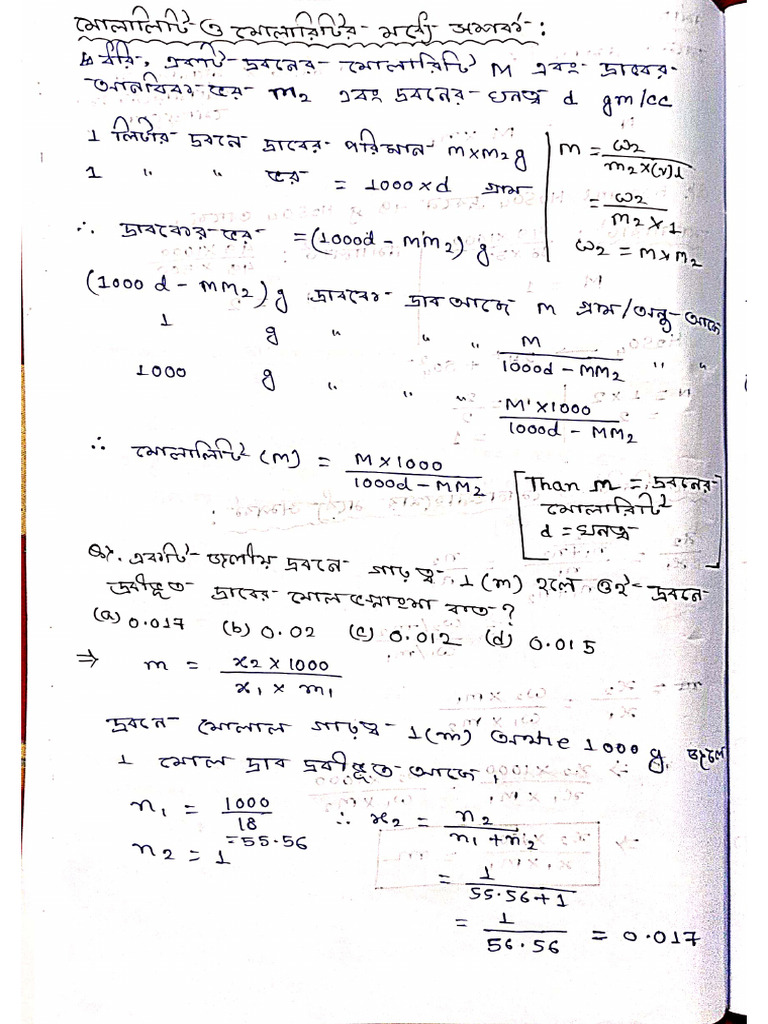 মোলালিটি ও মোলারিটির মধ্যে সম্পর্ক :
ধরি, একটি দ্রবনের মোলারিটি M এবং দ্রাবের
আনবিক ভর m₂ এবং দ্রবনের ঘনত্ব d gm/cc
1 লিটার দ্রবনে দ্রাবের পরিমান M×M₂g
1 " " ভর = 1000×d গ্রাম
∴ দ্রাবকের ভর = (1000d - MM₂) g
M = ω₂/m₂×(v)1
= ω₂/m₂×1
ω₂ = M×M₂
(1000 d - MM₂) g দ্রাবকে দ্রাব আছে M গ্রাম/অনু আছে
1 g " " " M/1000d - MM₂ " "
1000 g " " " M×1000/1000d - MM₂
∴ মোলালিটি (m) = M×1000/1000d - MM₂
[Than M = দ্রবনের
মোলারিটি
d = ঘনত্ব]
Q. একটি জলীয় দ্রবনে গাঢ়ত্ব 1(m) হলে ওই দ্রবনে
দ্রবীভূত দ্রাবের মোল ভগ্নাংশ কত?
(a) 0.017 (b) 0.02 (c) 0.012 (d) 0.015
⇒ m = x₂ × 1000/x₁ × m₁
দ্রবনে মোলাল গাঢ়ত্ব 1(m) অর্থাৎ 1000 g জলে
1 মোল দ্রাব দ্রবীভূত আছে,
n₁ = 1000/18
= 55.56
n₂ = 1
∴ x₂ = n₂/n₁+n₂
= 1/55.56+1
= 1/56.56 = 0.017